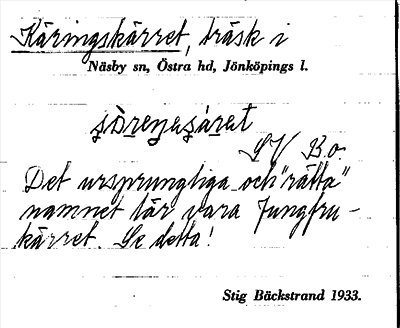 Käringskärret, träsk i
Näsby sn, Östra hd, Jönköpings l.
Bo.
Det ursprungliga och "rätta"
namnet lär vara Jungfru-
kärret. Se detta!
Stig Bäckstrand 1933.